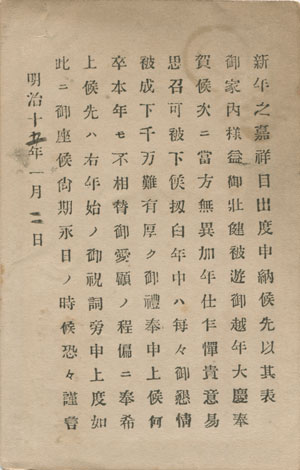 新年之嘉祥目出度申納候先以其表
御家内様益御壮健被遊御越年大慶奉
賀候次ニ當方無異加年仕乍憚貴意易
思召可被下候扨白年中ハ每々御懇情
被成下千万難有厚ク御禮奉申上候何
卒本年モ不相替御愛顧ノ程偏ニ奉希
上候先ハ右年始ノ御祝詞旁申上度如
此ニ御座候尚期永日ノ時候恐々謹言
明治十五年一月二日